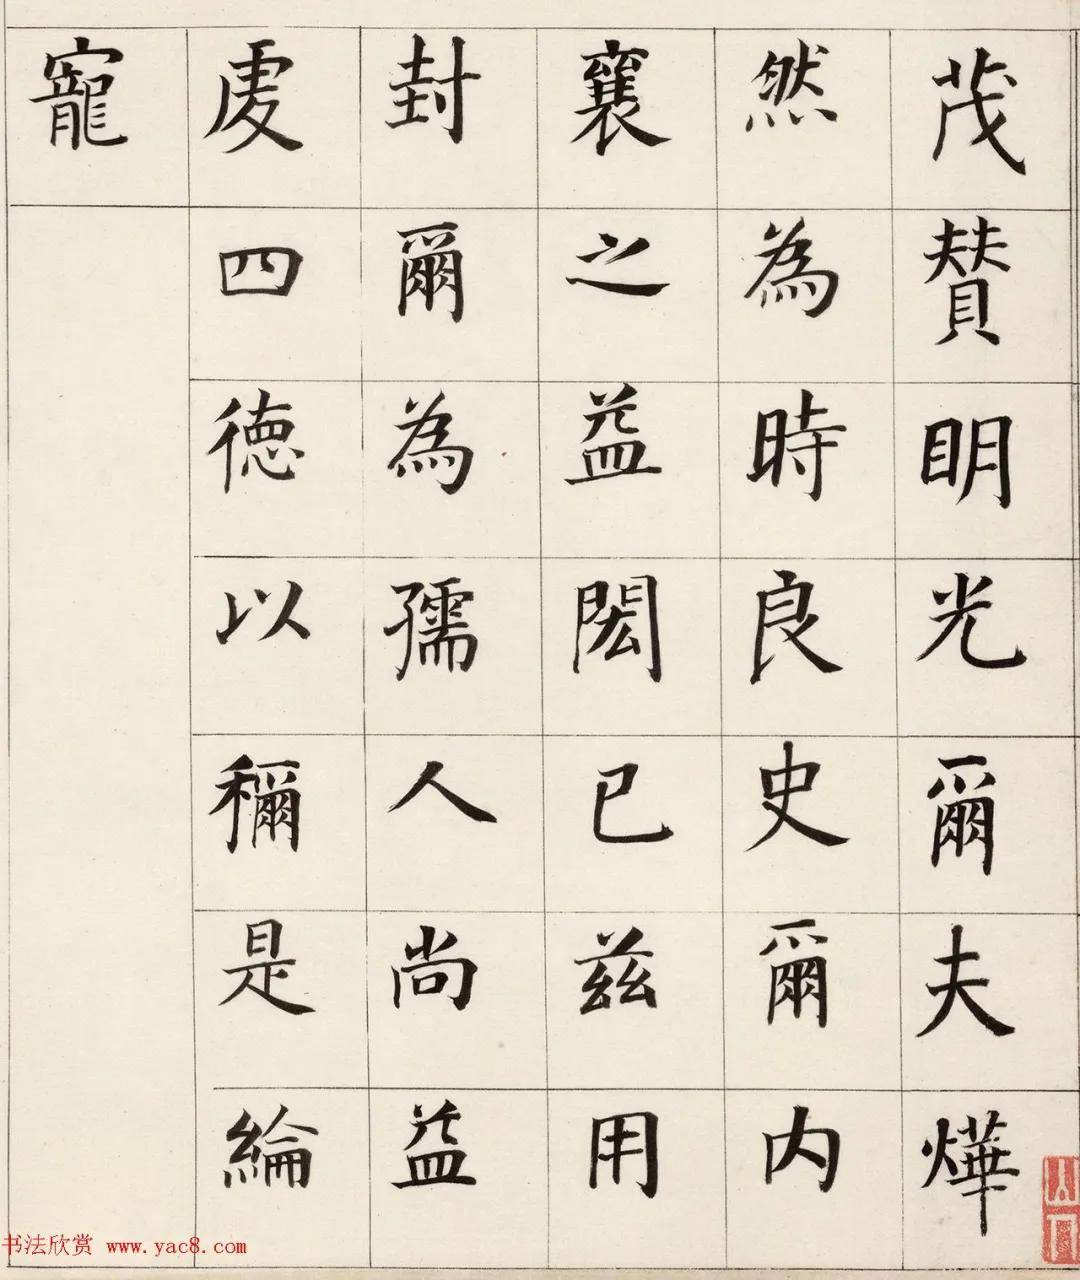 茂賛明光爾夫燁
然為時良史爾内
襄之益閎已兹用
封爾為孺人尚益
䖍四徳以穪是綸
寵
书法欣赏 www.yac8.com